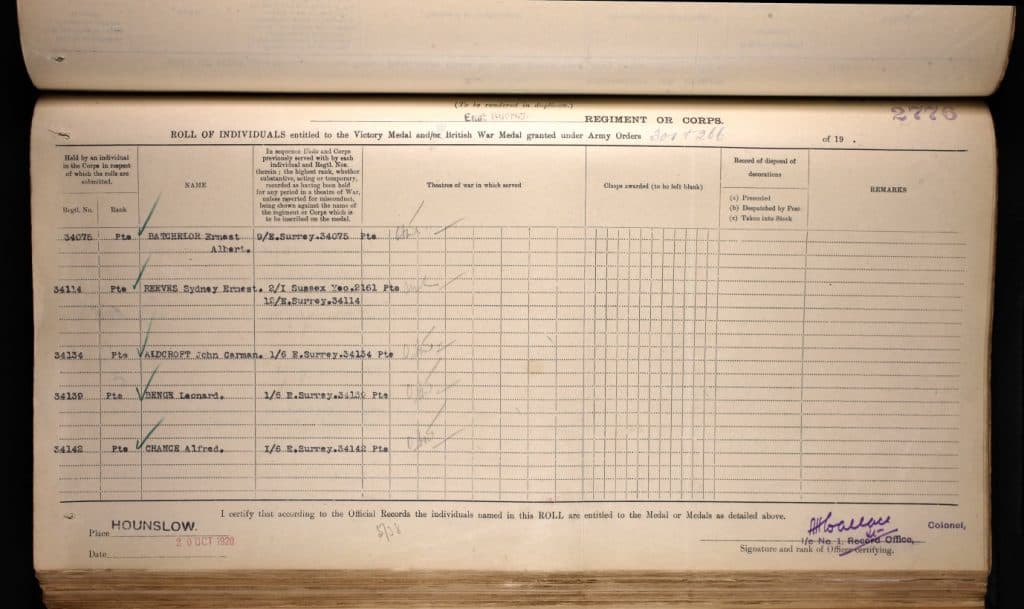 (To be rendered in duplicate.)
East Surrey REGIMENT OR CORPS. 2776
ROLL OF INDIVIDUALS entitled to the Victory Medal and/or British War Medal granted under Army Orders 301 & 266 of 19 .
Held by an individual
in the Corps in respect
of which the rolls are
submitted.
Regtl. No. Rank
NAME
In sequence Units and Corps
previously served with by each
individual and Regtl. Nos.
therein; the highest rank, whether
substantive, acting or temporary,
recorded as having been held
for any period in a theatre of War,
unless reverted for misconduct,
being shown against the name of
the regiment or Corps which is
to be inscribed on the medal.
Theatres of war in which served
Clasps awarded (to be left blank)
Record of disposal of
decorations
(a) Presented
(b) Despatched by Post
(c) Taken into Stock
REMARKS
34075 Pte BATCHELOR Ernest 9/E.Surrey.34075 Pte
Albert.
34114 Pte REEVES Sydney Ernest. 2/1 Sussex Yeo.2161 Pte
12/E.Surrey.34114
34134 Pte ALDCROFT John Carman. 1/6 E.Surrey.34134 Pte
34139 Pte BENGE Leonard. 1/6 E.Surrey.34139 Pte
34142 Pte CHANCE Alfred. 1/6 E.Surrey.34142 Pte
I certify that according to the Official Records the individuals named in this ROLL are entitled to the Medal or Medals as detailed above.
Place HOUNSLOW.
Date 20 OCT 1920
Colonel,
i/c No 1. Record Office,
Signature and rank of Officer certifying.